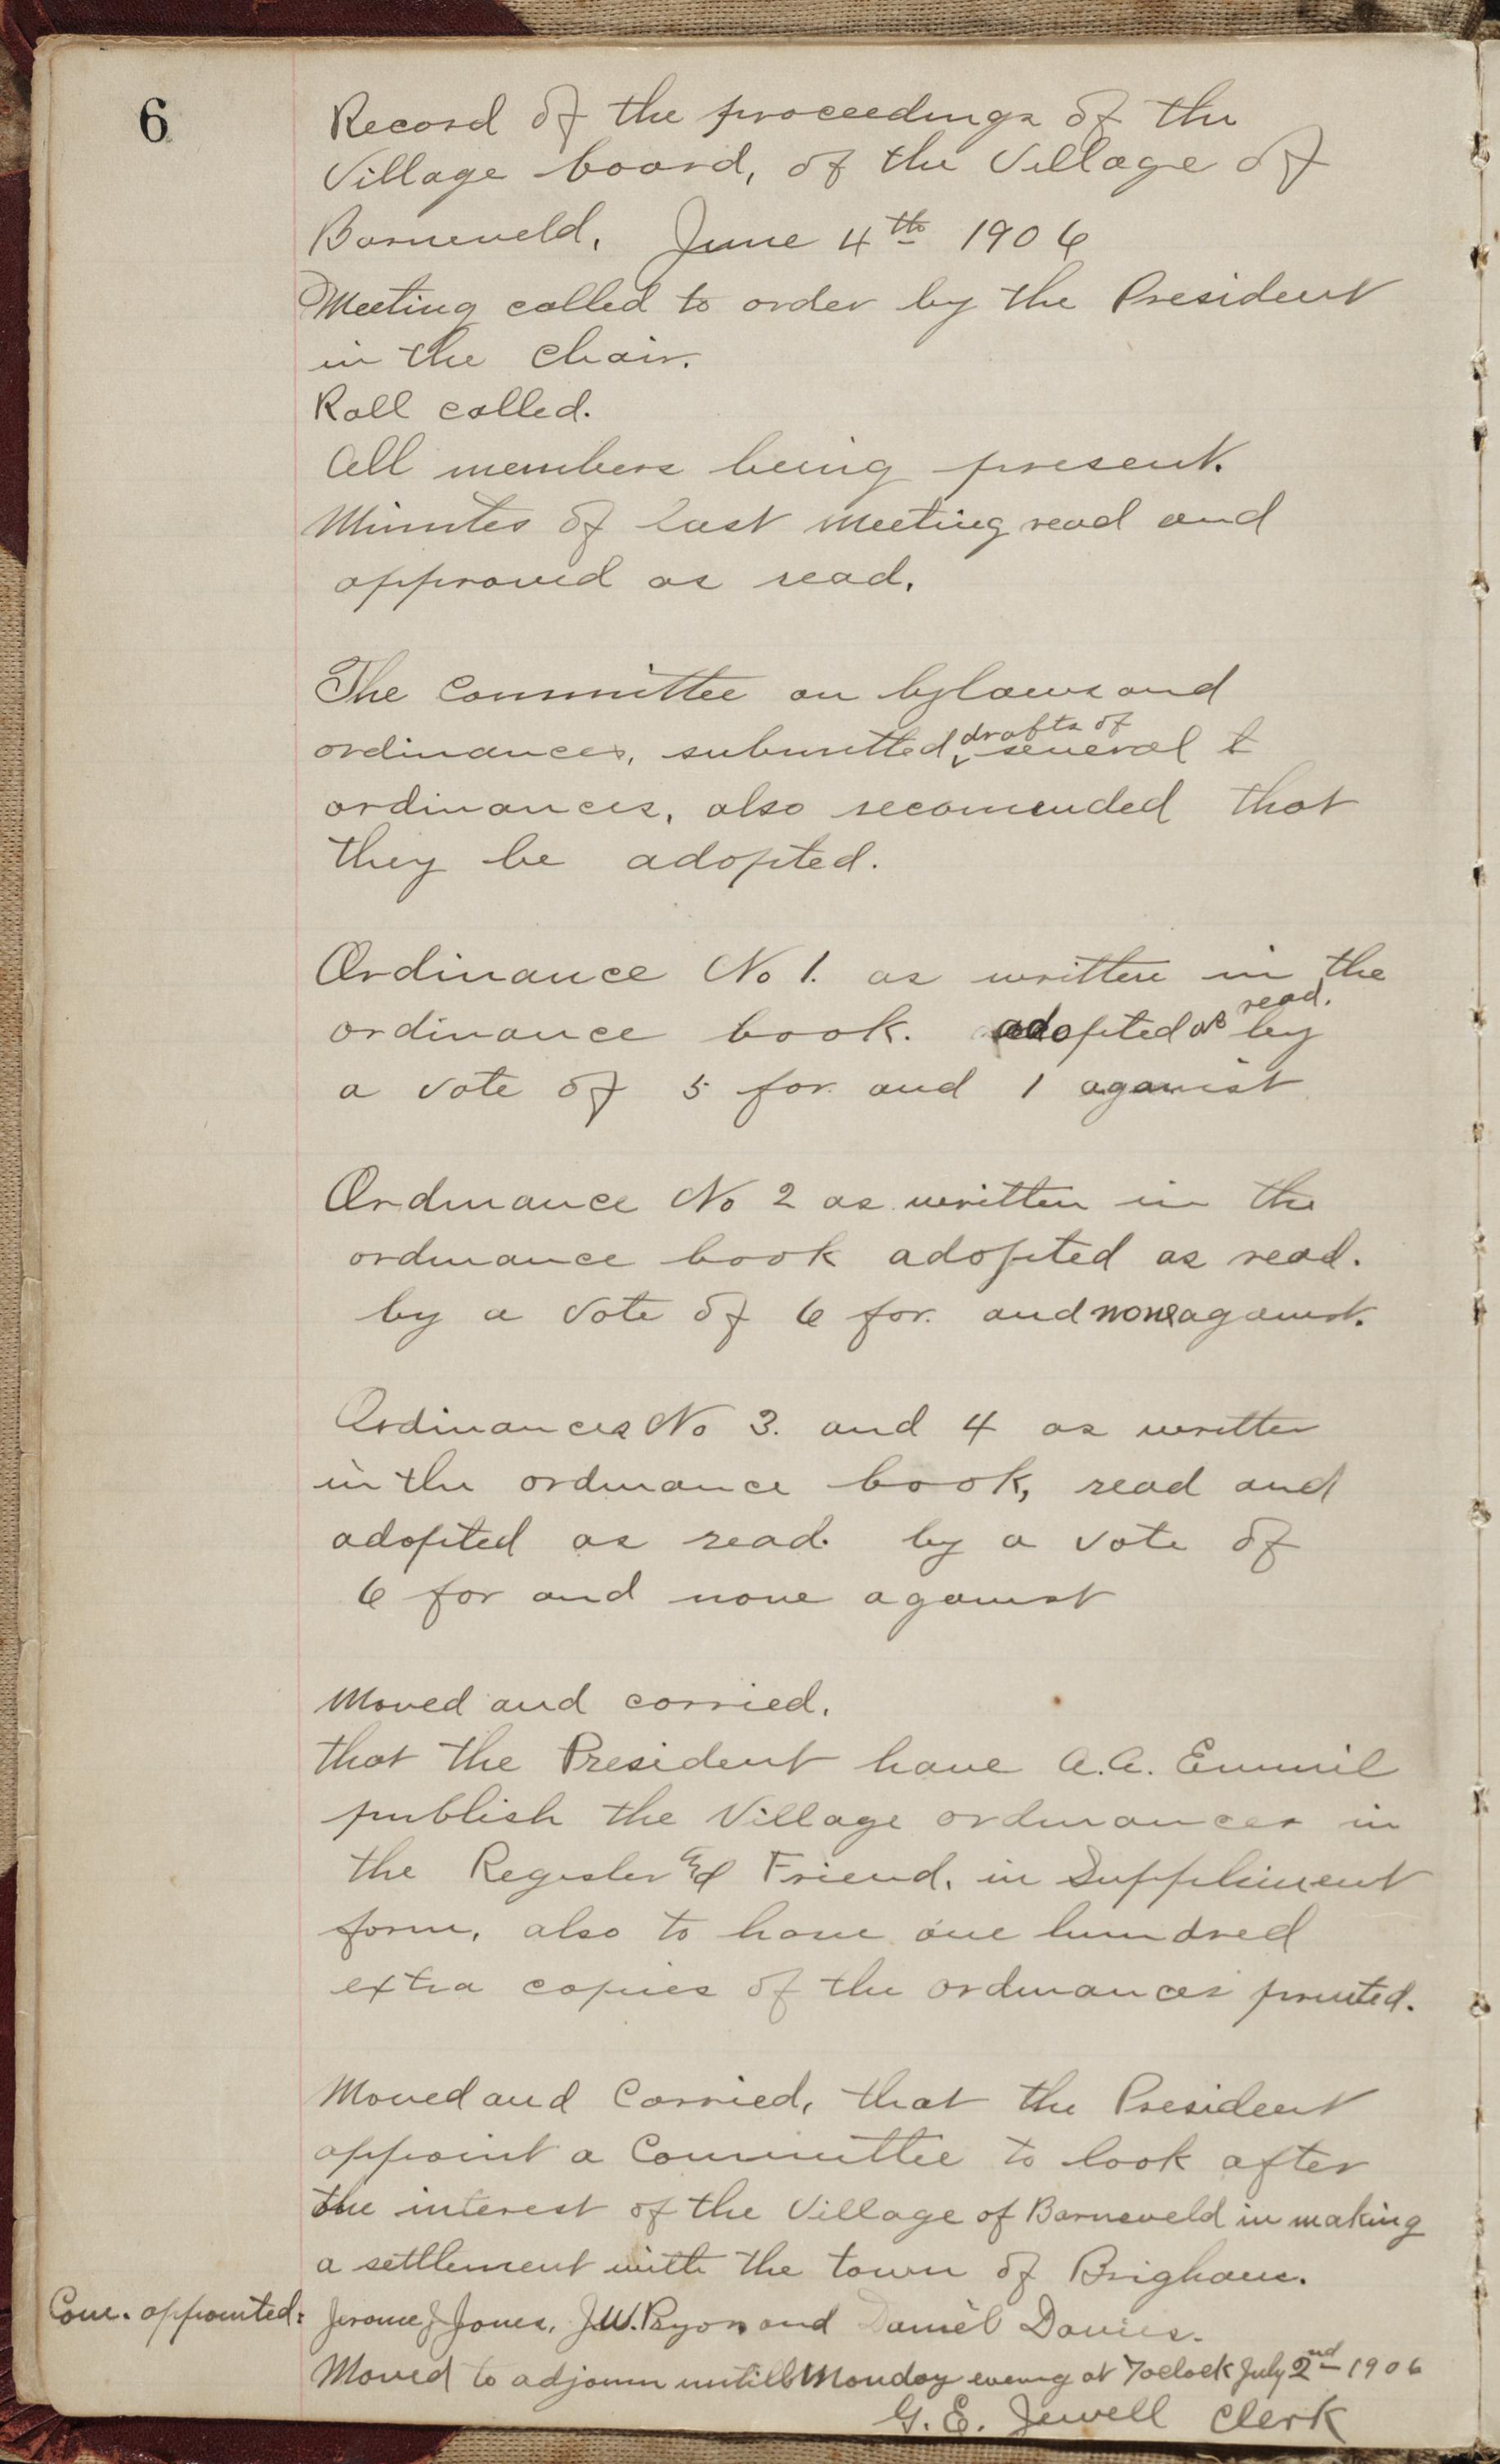 6
Record of the proceedings of the
Village board, of the Village of
Barneveld, June 4th 1906
Meeting called to order by the President
in the Chair.
Roll called.
All members being present.
Minutes of last meeting read and
approved as read.
The Committee on bylaws and
ordinances, submitted drafts of several t
ordinances, also recomended that
they be adopted.
Ordinance No 1. as written in the
ordinance book. adopted as read. by
a vote of 5 for and 1 against
Ordinance No 2 as written in the
ordinance book adopted as read.
by a vote of 6 for. and none against.
Ordinances No 3. and 4 as written
in the ordinance book, read and
adopted as read. by a vote of
6 for and none against
Moved and carried,
that the President have A.A.
publish the Village ordinances in
the Register and Friend, in Suppliment
form, also to have one hundred
extra copies of the ordinances printed.
Moved and Carried, that the President
appoint a Committee to look after
the interest of the Village of Barneveld in making
a settlement with the town of Brigham.
Com. appointed: Jerome J Jones, J.W. Pryor and Daniel Davies.
Moved to adjourn untill Monday evening at 7oclock July 2nd 1906
G. E. Jewell Clerk